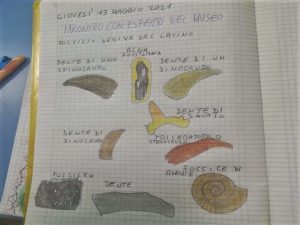 GIOVEDÌ 13 MAGGIO 2021
INCONTRO CON ESPERTO DEL MUSEO
FOSSILI: DERIVA DAL LATINO
ALGA
FOSSILIZZATA
DENTE DI UNO
SPINOSAURO
DENTE DI UN
DINOSAURO
DENTE DI
SQUALO
DENTE DI
DINOSAURO
TRICERATOPO O
STEGOSAURO
FOSSILE DI
DENTE